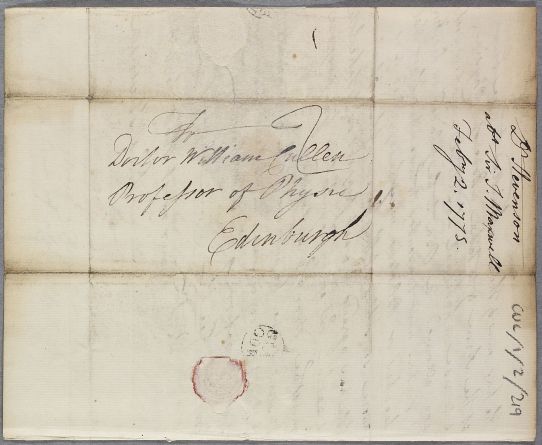 To
Doctor William Cullen
Professor of Physic
Edinburgh
Dr Stevenson
abt Sir J. Maxwell
Feby 2. 1775.
CUL/1/2/219